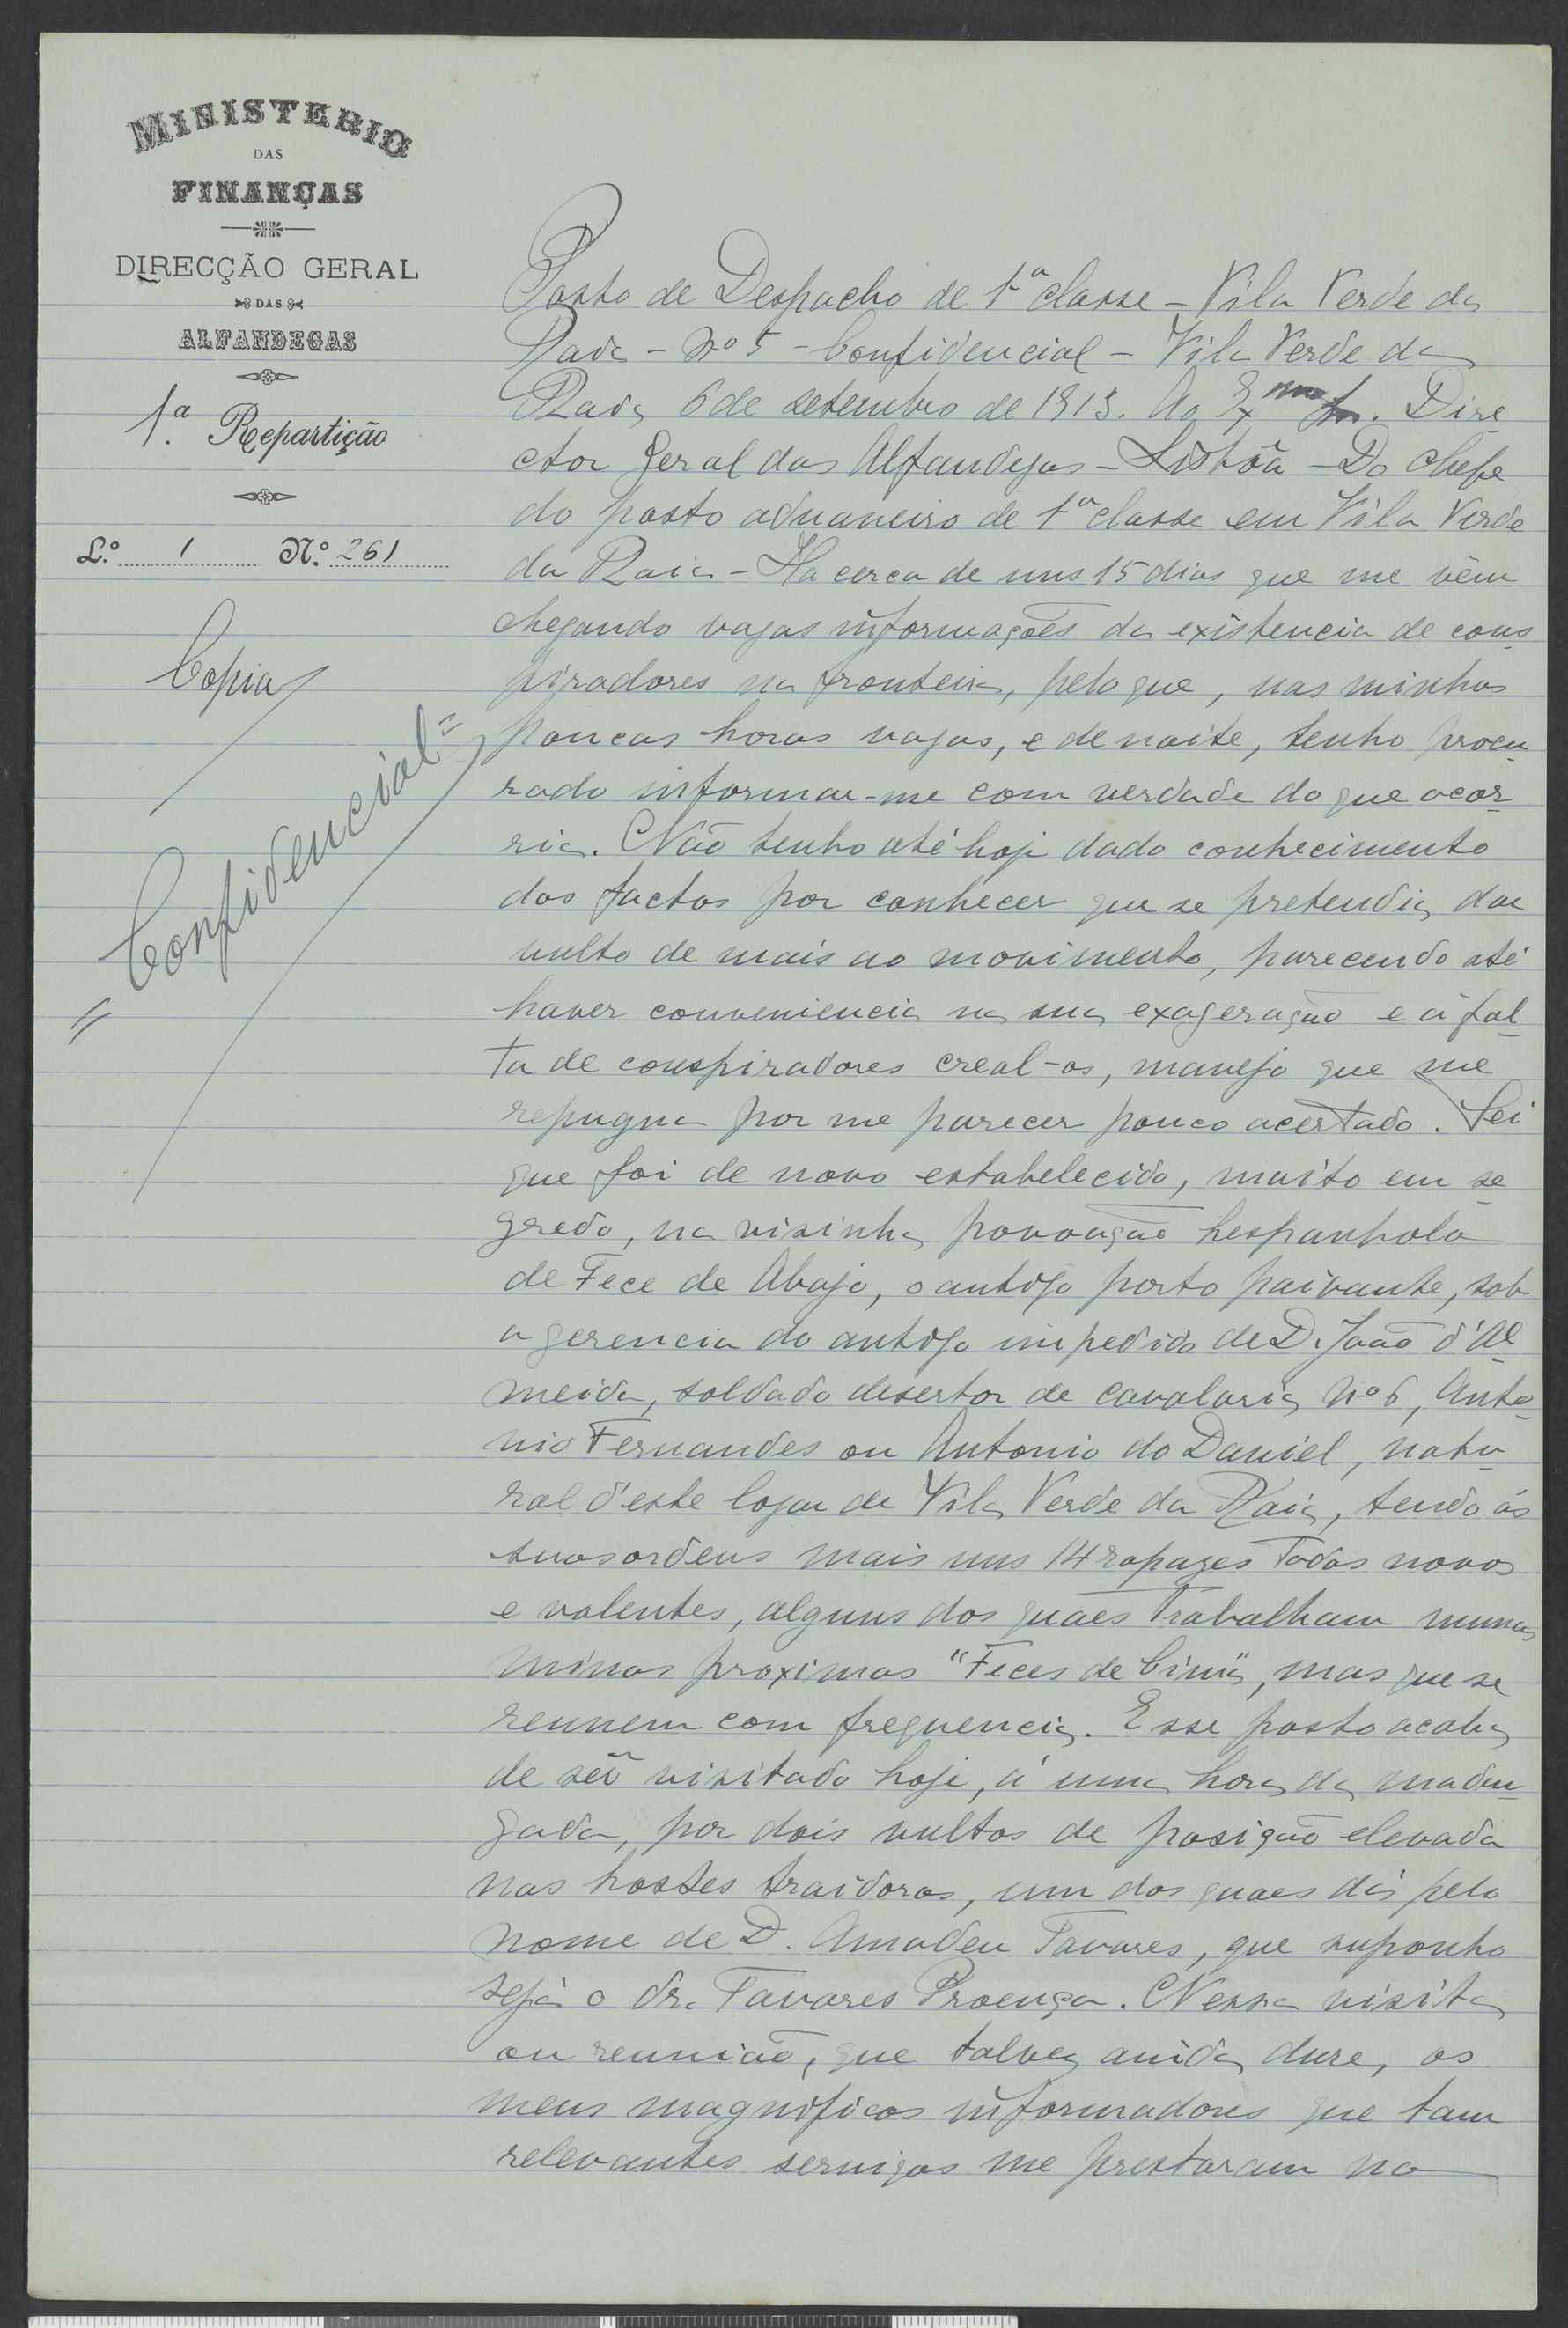 MINISTERIO
DAS
FINANÇAS
DIRECÇÃO GERAL
DAS
ALFANDEGAS
1.ª Repartição
L.º 1 N.º 261
Copia
"Confidencial"
Posto de Despacho de 1ª classe - Vila Verde da
Raia - Nº 5 - Confidencial - Vila Verde da
Raia, 6 de setembro de 1913. Ao Exmo Snr. Dire
ctor Geral das Alfandegas - Lisbôa - Do chefe
do posto aduaneiro de 1ª classe em Vila Verde
da Raia - Ha cerca de uns 15 dias que me vêm
chegando vagas informações da existencia de cons
piradores na fronteira, pelo que, nas minhas
poucas horas vagas, e de noite, tenho procu
rado informar-me com verdade do que ocor
ria. Não tenho até hoje dado conhecimento
dos factos por conhecer que se pretendia dar
vulto de mais ao movimento, parecendo até
haver conveniencia na sua exageração e á fal
ta de conspiradores creal-os, manejo que me
repugna por me parecer pouco acertado. Sei
que foi de novo estabelecido, muito em se
gredo, na visinha povoação hespanhola
de Fece de Abajo, o antigo posto paivante, sob
a gerencia do antigo impedido de D. João d'Al
meida, soldado desertor de cavalaria nº 6, Anto
nio Fernandes ou Antonio do Daniel, natu
ral d'este logar de Vila Verde da Raia, tendo ás
suas ordens mais uns 14 rapazes todos novos
e valentes, alguns dos quaes trabalham numas
minas proximas "Feces de Cima", mas que se
reunem com frequencia. Esse posto acaba
de ser visitado hoje, á uma hora da madru
gada, por dois vultos de posição elevada
nas hostes traidoras, um dos quaes dá pelo
nome de D. Amadeu Tavares, que suponho
seja o dr. Tavares Proença. Nessa visita
ou reunião, que talvez ainda dure, os
meus magnificos informadores que tam
relevantes serviços me prestaram na